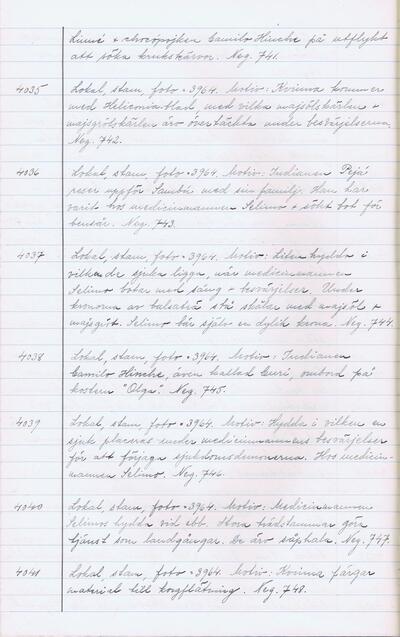 Linné + chocópojken Camilo Hinche på utflykt
att söka krukskärvor. Neg. 741.
4035 Lokal, stam, foto = 3964. Motiv: Kvinna kommer
med Heliconia-blad med vilka majsölskärlen +
majsgrötskärlen äro övertäckta under besvärjelserna.
Neg. 742.
4036 Lokal, stam, foto = 3964. Motiv: Indianen Pejá
reser uppför Sambú med sin familj. Han har
varit hos medicinmannen Selimo + sökt bot för
bensår. Neg. 743.
4037 Lokal, stam, foto = 3964. Motiv: Liten hydda i
vilken de sjuka ligga, när medicinmannen
Selimo botar med sång + besvärjelser. Under
kronorna av balsaträ stå skålar med majsöl +
majsgröt. Selimo bär själv en dylik krona. Neg. 744.
4038 Lokal, stam, foto = 3964. Motiv: Indianen
Camilo Hinche, även kallad Curí, ombord på
kostern "Olga". Neg. 745.
4039 Lokal, stam, foto = 3964. Motiv: Hydda i vilken en
sjuk placeras under medicinmannens besvärjelser
för att förjaga sjukdomsdemonerna. Hos medicin-
mannen Selimo. Neg. 746.
4040 Lokal, stam, foto = 3964. Motiv: Medicinmannen
Selimos hydda vid ebb. Stora trädstammar göra
tjänst som landgångar. De äro såphala. Neg. 747.
4041 Lokal, stam, foto = 3964. Motiv: Kvinna färgar
material till korgflätning. Neg. 748.